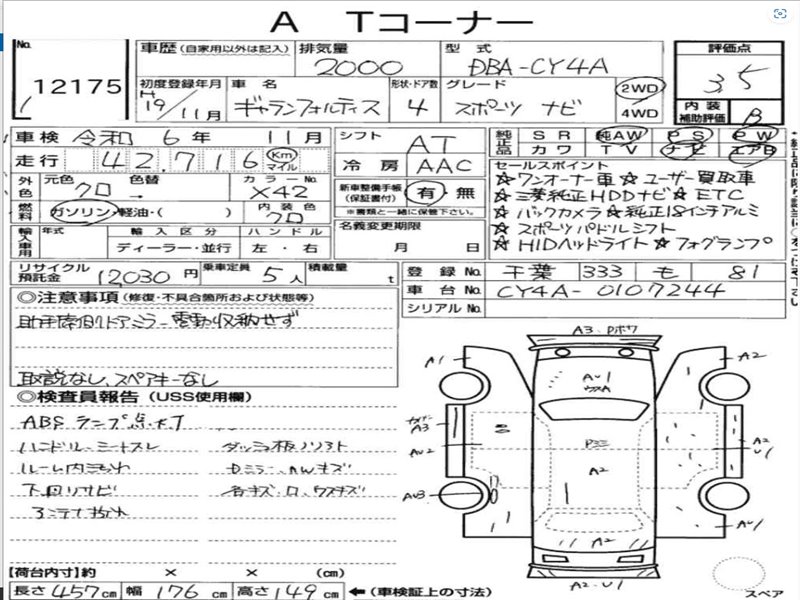 A Tコーナー
No. 12175
車歴 (自家用以外は記入) 排気量 2000 型式 DBA-CY4A 評価点 3.5
初度登録年月 H19/11月 車名 ギャランフォルティス 形状・ドア数 4 グレード スポーツ ナビ 2WD 4WD 内装補助評価 B
車検 令和 6年 11月 シフト AT 純正品 SR 純AW PS PW
走行 42,716 Km マイル 冷房 AAC カワ TV ナビ エアB
外色 元色 クロ 色替 カラーNo. X42 新車整備手帳(保証書付) 有 無
※書類と一緒に保管下さい。
燃料 ガソリン・軽油・( ) 内装色 クロ
セールスポイント
☆ワンオーナー車☆ユーザー買取車
☆三菱純正HDDナビ☆ETC
☆バックカメラ☆純正18インチアルミ
☆スポーツパドルシフト
☆HIDヘッドライト☆フォグランプ
輸入車用 年式 輸入区分 ハンドル 名義変更期限
ディーラー・並行 左・右 月 日
リサイクル預託金 12,030円 乗車定員 5人 積載量 t
登録No. 千葉 333 も 81
車台No. CY4A-0107244
シリアルNo.
◎注意事項(修復・不具合箇所および状態等)
助手席側ドアミラー電動収納せず
取説なし、スペアキーなし
◎検査員報告 (USS使用欄)
ABSランプ点灯
ハンドル・シートスレ ダッシュ板ノリフト
ルーム内汚れ Dミラー、AWキズ
下回りサビ 各キズ・ロ、ウスキズ
コンテナ抜け
A3 Dボウ
A1 A2
AU1
A3
AU2
A2
A2
U1
AU3
AU1
A2
A2・U1
スペア
【荷台内寸】約 × × (cm)
長さ 457cm 幅 176cm 高さ 149cm ←(車検証上の寸法)